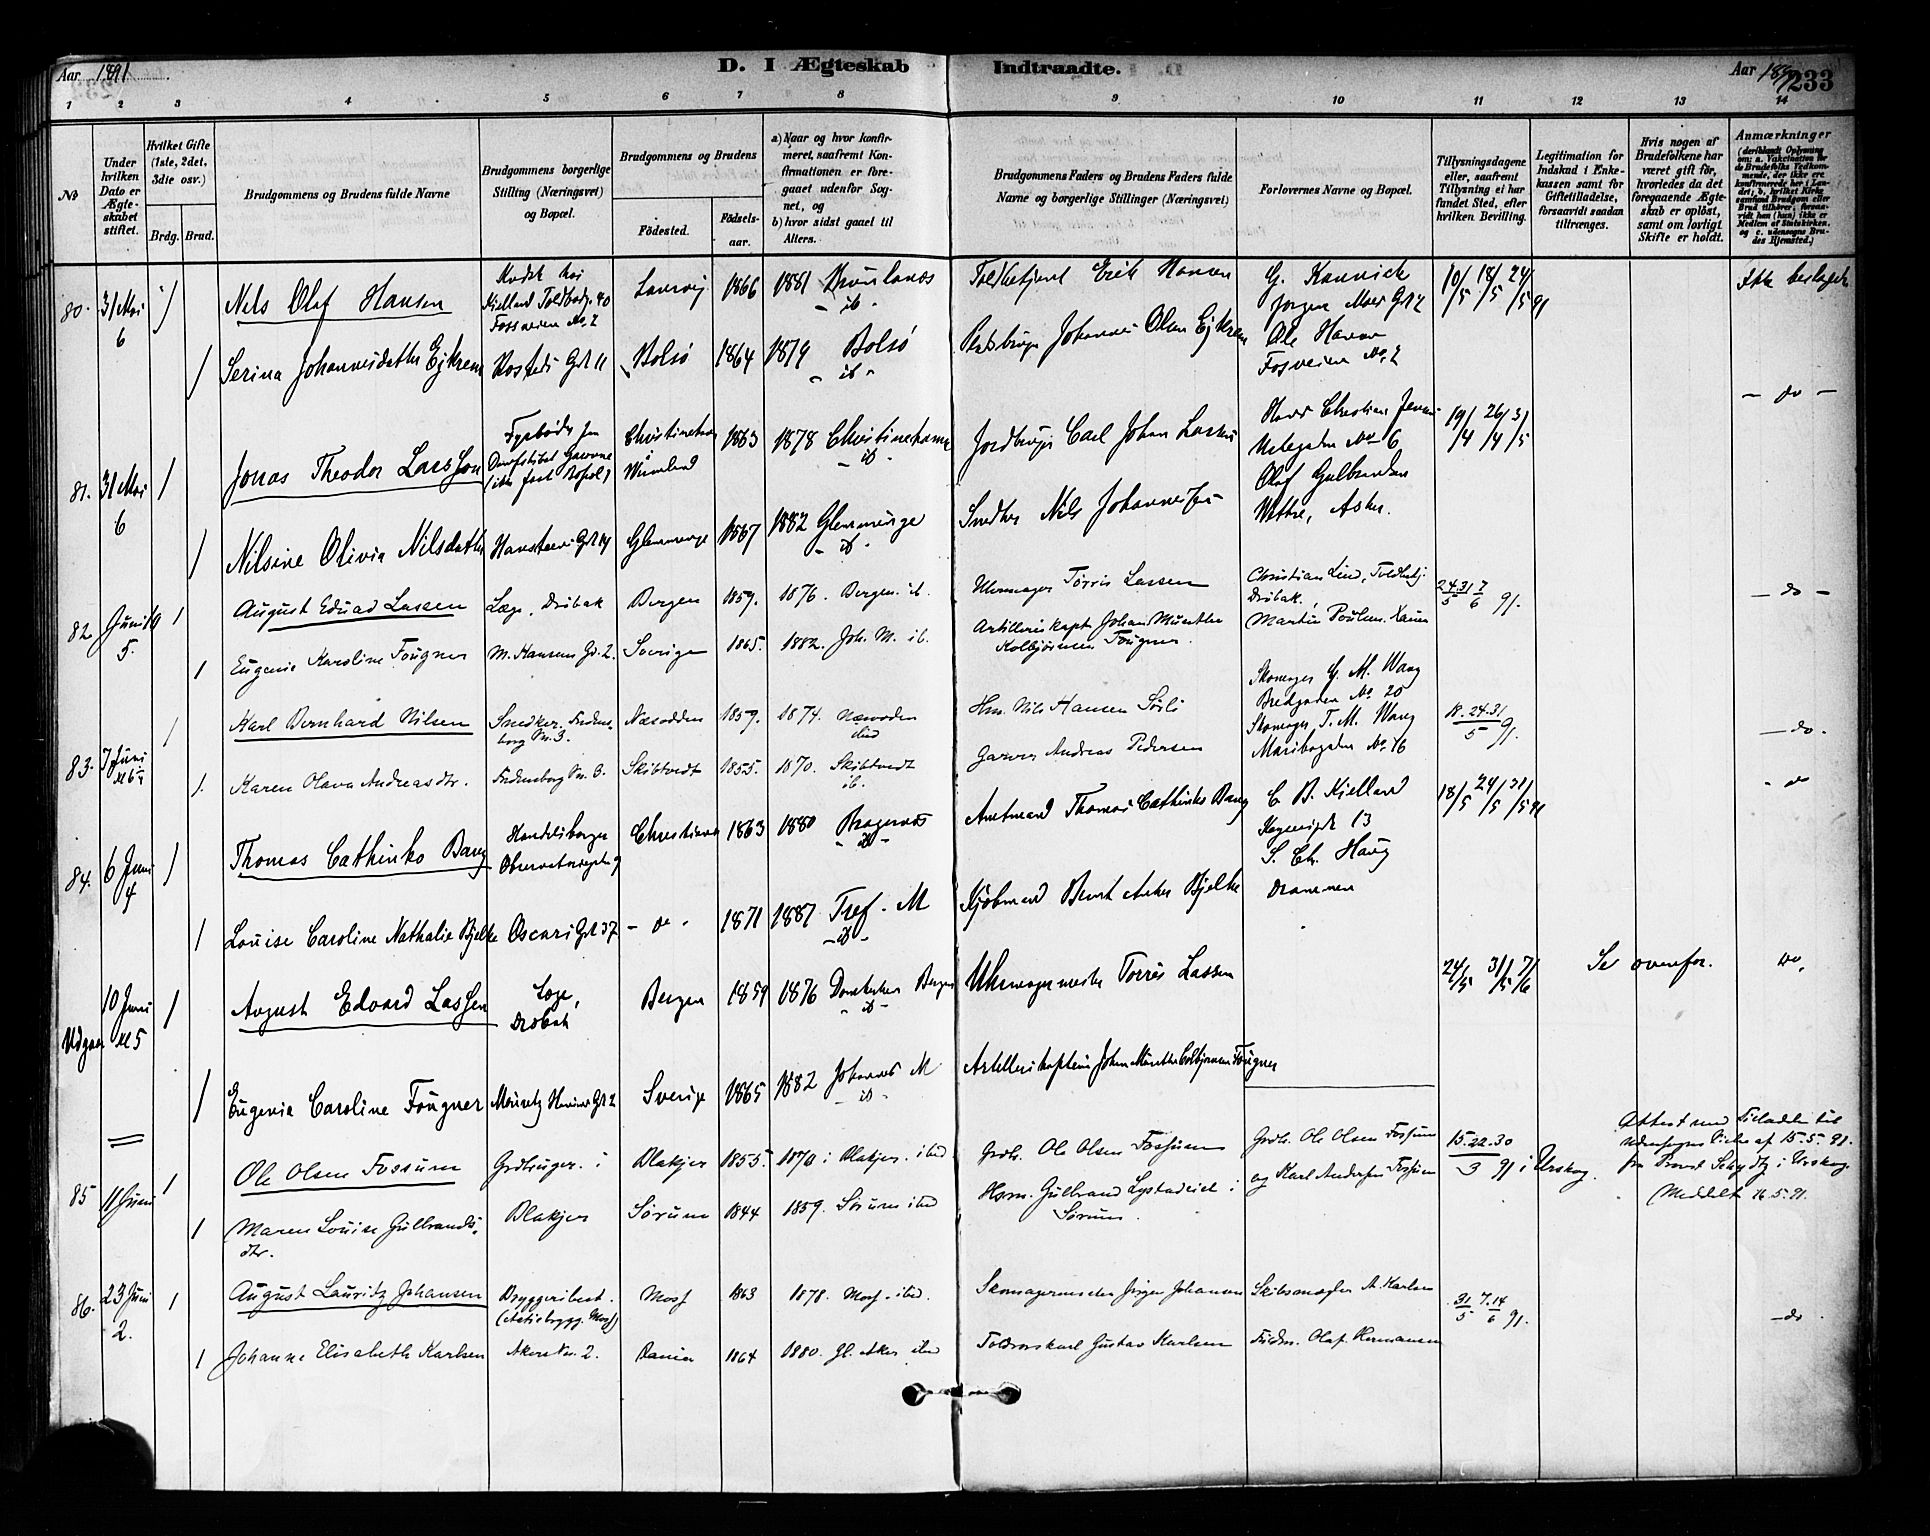 Aar 1891
D. I Ægteskab Indtraadte.
Aar 1891
233
1 2 3 4 5 6 7 8 9 10 11 12 13 14
No
Under hvilken Dato er Ægteskabet stiftet.
Hvilket Gifte (1ste, 2det, 3die osv.)
Brdg. Brud.
Brudgommens og Brudens fulde Navne
Brudgommens borgerlige Stilling (Næringsvei) og Bopæl.
Brudgommens og Brudens
Fødested. Fødselsaar.
a) Naar og hvor konfirmeret, saafremt Konfirmationen er foregaaet udenfor Sognet, og
b) hvor sidst gaaet til Alters.
Brudgommens Faders og Brudens Faders fulde Navne og borgerlige Stillinger (Næringsvei)
Forlovernes Navne og Bopæl.
Tillysningsdagene eller, saafremt Tillysning ei har fundet Sted, efter hvilken Bevilling.
Legitimation for Indskud i Enkekassen samt for Giftetilladelse, forsaavidt saadan tiltrænges.
Hvis nogen af Brudefolkene har været gift før, hvorledes da det foregaaende Ægteskab er opløst, samt om lovligt Skifte er holdt.
Anmærkninger
80. 31 Mai 6 1 Nels Olaf Hansen Kudsk hos Kielland Toldbodg. 40 Fossveien No. 2 Laurvig 1866 1881 ib. Toldbetjent Erik Hansen G. Kannick Jørgen Moes Gd 2 10/5 18/5 24/5 91 Ikke beslægtet
1 Serina Johannesdatter Ejkrem Rosteds Gd 11 Bolsö 1864 1879 Bolsö - ib - Johannes Olsen Ejkrem Ole Hansen Fosveien No. 2
81. 31 Mai 6 1 Jonas Theodor Larsson Fyrbøder paa (ikke fast Bopæl) Christinehamn Wermland 1863 1878 Christinehamn - ib - Jordbruger Carl Johan Larsson Christian Jensen No 6 19/4 26/4 31/5 - do -
1 Nilsine Olivia Nilsdatter Hansteens Gd 14 Glemminge 1867 1882 Glemminge - ib - Snedker Nils Johannesen Olaf Gulbrandsen Vettre, Asker.
82. Juni 10 5. 1 August Eduad Lassen Læge, Drøbak Bergen 1859. 1876. Bergen. ib. Uhrmager Torris Lassen Christian Lind, Toldbetj. Drøbak. 24.31/5 7/6 91. - do -
1 Eugenie Karoline Fougner M. Hansens Gd. 2. Sverige 1865. 1882. Joh. M. ib. Artillerikapt. Johan Munthe Kolbjørnsen Fougner. Martin Poulsen.
83. 7 Juni 1 Karl Bernhard Nilsen Snedker, Fredensborg Vn. 3. Næsodden 1859. 1874. Næsodden ibid Hm. Nils Hansen Sørli Skomager G. M. Wang Bredgaden No. 20 18.24.31/5 91. - do.
1. Karen Olava Andreasdtr. Fredensborg Vn. 3. Skibtvedt 1855. 1870. Skibtvedt ib. Garver Andreas Pedersen Skomager T. M. Wang Maribogaden No. 16
84. 6 Juni 4 1 Thomas Cathinko Bang Handelsborger Observatoriegdn 9 Christiania 1863 1880 Bragernæs - ib - Amtmand Thomas Cathinko Bang C. B. Kielland 13 18/5 24/5 31/5 91 - do
1 Louise Caroline Nathalie Bjelke Oscars Gd 37 - do - 1871 1887 Tref. M - ib - Kjøbmand Bernt Anker Bjelke S. Chr. Haug Drammen
Udgaar 10 Juni kl 5 1 August Edvard Lassen Læge, Drøbak Bergen 1859 1876 Domkirken Bergen - ib - Uhrmagermester Torris Lassen 24/5 31/5 7/6 Se ovenfor. do.
1 Eugenia Caroline Fougner Mauritz Hansens Gd 2 Sverige 1865 1882 Johannes M - ib - Artillerikaptein Johan Munthe Colbjørnsen Fougner
85 11 Juni 1 Ole Olsen Fossum Grdbruger. i Blakjer 1855. 1870 i Blakjer. ibid Grdbr. Ole Olsen Fossum Grdb. Ole Olsen Fossum 15.22.30/3 91 i Urskog. Attest med Tilladelse til af 15.5.91. fra Provst Schydtz i Urskog. Meddelt 16.5.91.
1 Maren Louise Gulbrandsdtr. Blakjer Sørum 1844 1859. Sørum ibid Hsm. Gulbrand Lystadeiet i Sørum. og Karl Andersen Fossum
86. 23 Juni 2. 1 August Lauritz Johansen Bryggeribest. (Actiebrygg. Moss) Moss 1863 1878. Moss. ibid. Skomagermester Jørgen Johansen Skibsmægler A. Karlsen 31/5 7.14/6 91. - do.
1 Johanne Elisabeth Karlsen Akers Vn. 2. 1864 1880. Gl. Aker ibid Gustav Karlsen Olaf Hermansen